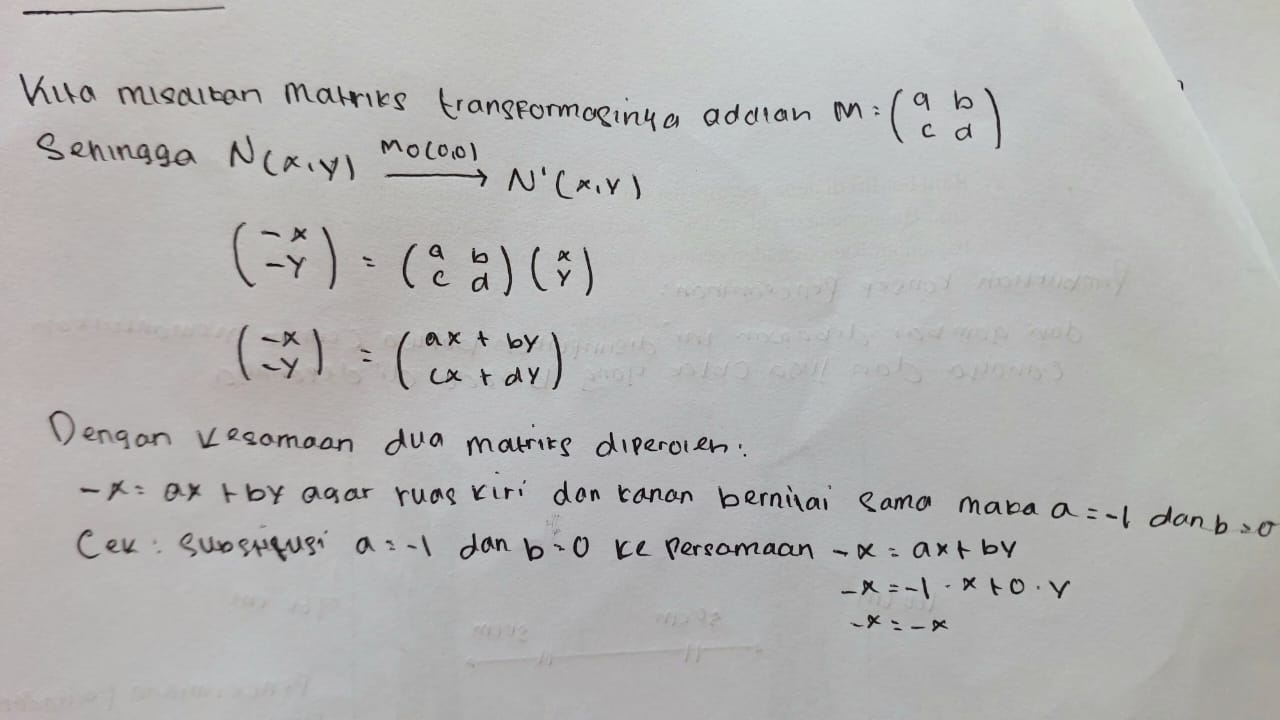 Kita misalkan matriks transformasinya adalah M = (a b
c d)
Sehingga N(x,y) MO(0,0) → N'(x,y)
(-x
-y) = (a b
c d) (x
y)
(-x
-y) = (ax + by
cx + dy)
Dengan kesamaan dua matriks diperoleh:
-x = ax + by agar ruas kiri dan kanan bernilai sama maka a = -1 dan b = 0
Cek: Substitusi a = -1 dan b = 0 ke persamaan -x = ax + by
-x = -1 · x + 0 · y
-x = -x